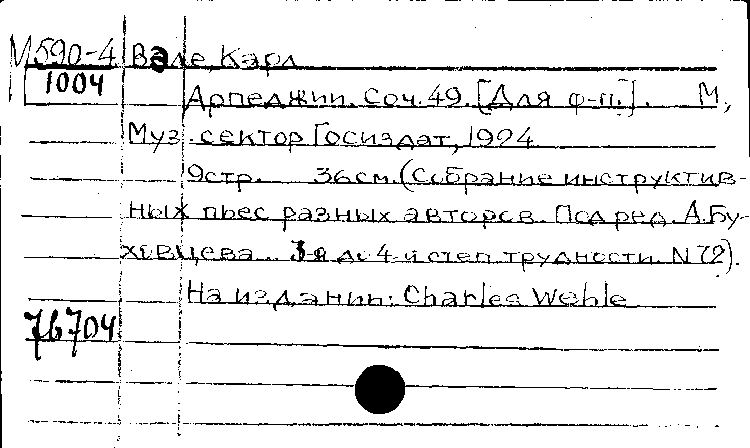 М590-4 Вэле, Карл
1004 Арпеджии. Соч. 49. [Для ф-п.]. М,
Муз. сектор Госиздат, 1924
9стр. 36см. (Собрание инструктив-
ных пьес разных авторов. Под ред. А. Бу-
ховцева.. 3-я до 4-й степ. трудности. N 72).
На издании: Charles Wehle
76704